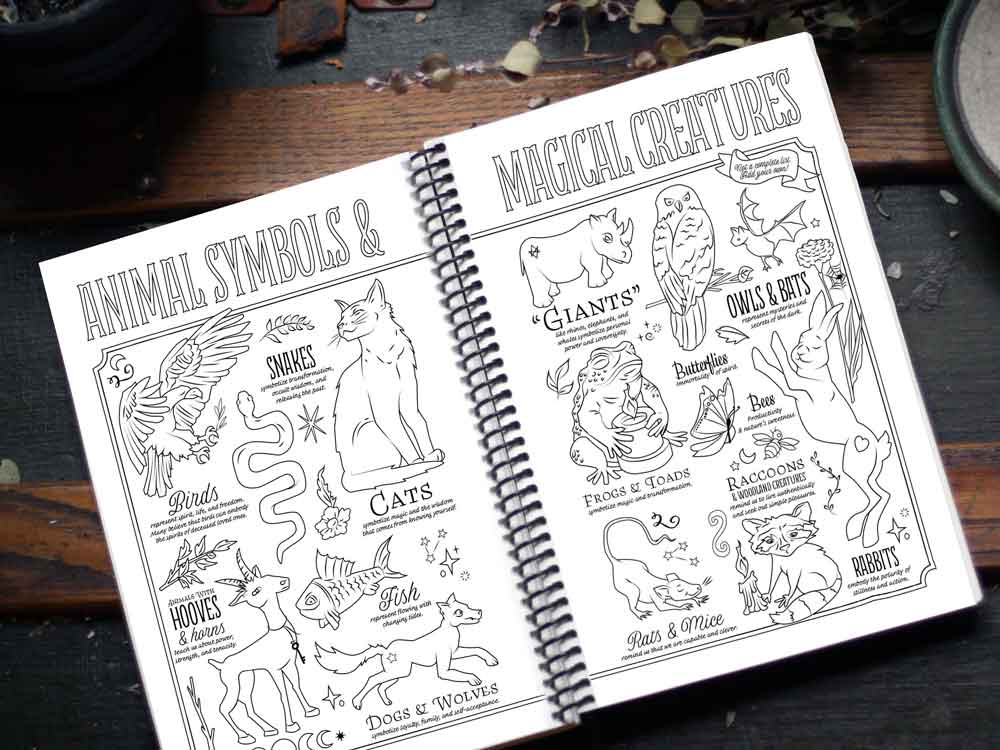 ANIMAL SYMBOLS &
SNAKES
symbolize transformation,
occult wisdom, and
releasing the past.
Birds
represent spirit, life, and freedom.
Many believe that birds can embody
the spirits of deceased loved ones.
CATS
symbolize magic and the wisdom
that comes from knowing yourself.
ANIMALS WITH
HOOVES
& horns
teach us about power,
strength, and tenacity.
Fish
represent flowing with
changing tides.
DOGS & WOLVES
symbolize loyalty, family, and self-acceptance.
MAGICAL CREATURES
Not a complete list.
Add your own!
"GIANTS"
like rhinos, elephants, and
whales symbolize personal
power and sovereignty.
OWLS & BATS
represent mysteries and
secrets of the dark.
Butterflies
Immortality of spirit.
Bees
Productivity
& nature's sweetness
FROGS & TOADS
symbolize magic and transformation.
RACCOONS
& WOODLAND CREATURES
remind us to live authentically
and seek out simple pleasures.
Rats & Mice
remind us that we are capable and clever.
RABBITS
embody the polarity of
stillness and action.